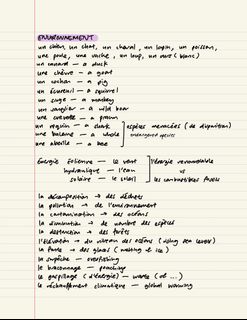 ENVIRONNEMENT
un chien, un chat, un cheval, un lapin, un poisson,
une poule, une vache, un loup, un ours (blanc)
un canard - a duck
une chèvre - a goat
un cochon - a pig
un écureuil - a squirrel
un singe - a monkey
un sanglier - a wild boar
une crevette - a prawn
un requin - a shark
une baleine - a whale
une abeille - a bee
espèces menacées (de disparition)
endangered species
Énergie éolienne - le vent
hydraulique - l'eau
solaire - le soleil
l'énergie renouvelable
vs
les combustibles fossiles
la décomposition → des déchets
la pollution → de l'environnement
la contamination → des océans
la diminution → de nombre des espèces
la destruction → des forêts
l'élévation → du niveau des océans (rising sea level)
la fonte → des glaces (melting of ice)
la surpêche - overfishing
le braconnage - poaching
le gaspillage (d'énergie) - waste (of ...)
le réchauffement climatique - global warming